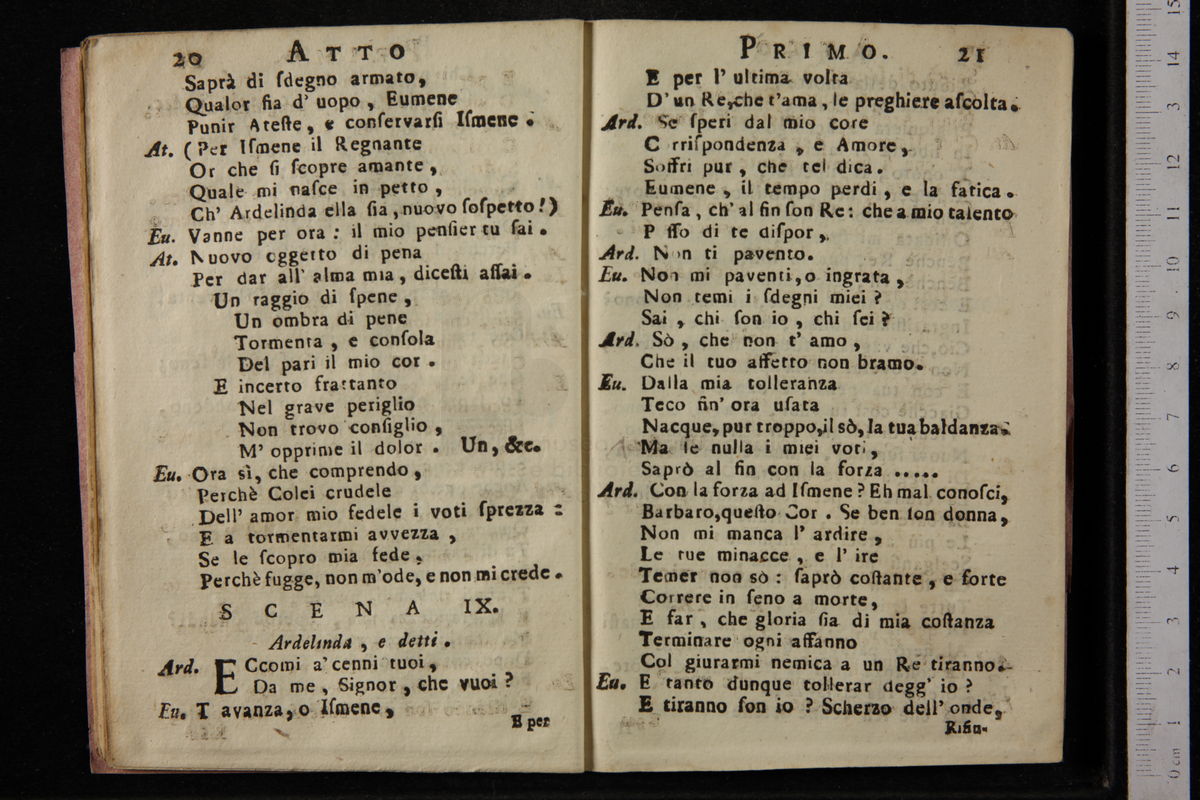 20 ATTO
Saprà di ſdegno armato,
Qualor ſia d' uopo, Eumene
Punir Ateſte, e conſervarſi Iſmene.
At. (Per Iſmene il Regnante
Or che ſi ſcopre amante,
Quale mi naſce in petto,
Ch' Ardelinda ella ſia, nuovo ſoſpetto!)
Eu. Vanne per ora: il mio penſier tu ſai.
At. Nuovo oggetto di pena
Per dar all' alma mia, diceſti aſſai.
Un raggio di ſpene,
Un ombra di pene
Tormenta, e conſola
Del pari il mio cor.
E incerto frattanto
Nel grave periglio
Non trovo conſiglio,
M' opprime il dolor. Un, &c.
Eu. Ora sì, che comprendo,
Perchè Colei crudele
Dell' amor mio fedele i voti ſprezza:
E a tormentarmi avvezza,
Se le ſcopro mia fede,
Perchè fugge, non m'ode, e non mi crede.
SCENA IX.
Ardelinda, e detti.
Ard. ECcomi a' cenni tuoi,
Da me, Signor, che vuoi?
Eu. T avanza, o Iſmene,
E per
PRIMO. 21
E per l' ultima volta
D' un Re, che t'ama, le preghiere aſcolta.
Ard. Se ſperi dal mio core
C rriſpondenza, e Amore,
Soffri pur, che tel dica.
Eumene, il tempo perdi, e la fatica.
Eu. Penſa, ch' al fin ſon Re: che a mio talento
P ſſo di te diſpor,
Ard. Non ti pavento.
Eu. Non mi paventi, o ingrata,
Non temi i ſdegni miei?
Sai, chi ſon io, chi ſei?
Ard. Sò, che non t' amo,
Che il tuo affetto non bramo.
Eu. Dalla mia tolleranza
Teco ſin' ora uſata
Nacque, pur troppo, il sò, la tua baldanza.
Ma ſe nulla i miei voti,
Saprò al fin con la forza .....
Ard. Con la forza ad Iſmene? Eh mal conoſci,
Barbaro, queſto Cor. Se ben ſon donna,
Non mi manca l' ardire,
Le tue minacce, e l' ire
Temer non sò: ſaprò coſtante, e forte
Correre in ſeno a morte,
E far, che gloria ſia di mia coſtanza
Terminare ogni affanno
Col giurarmi nemica a un Re tiranno.
Eu. E tanto dunque tollerar degg' io?
E tiranno ſon io? Scherzo dell' onde,
Rifiu-
0 cm 1 2 3 4 5 6 7 8 9 10 11 12 3 14 15